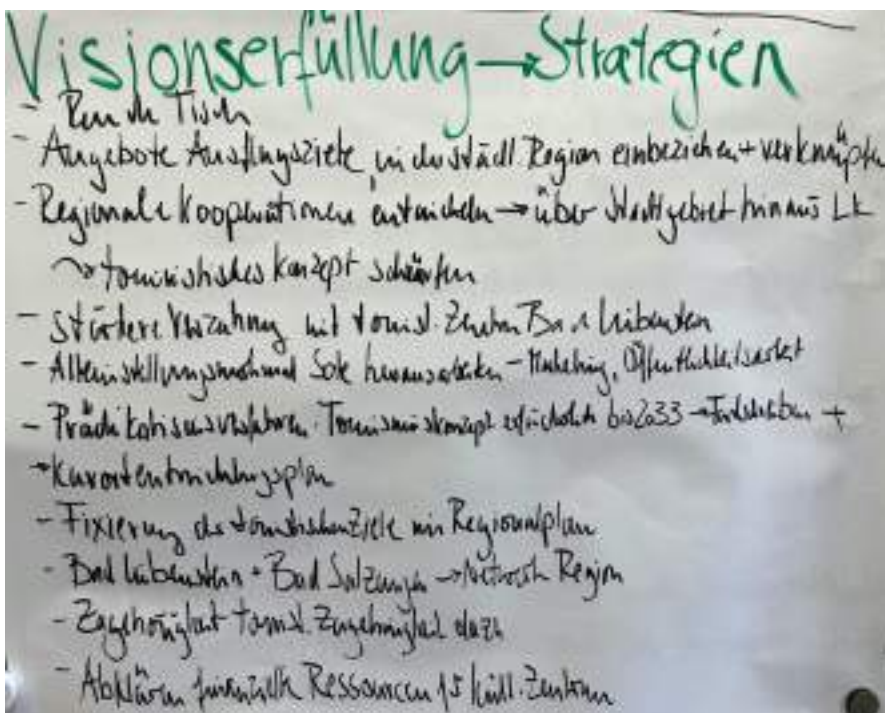 Visionserfüllung → Strategien
- Runde Tisch
- Angebote Ausflugsziele in der städt. Region einbeziehen + verknüpfen
- Regionale Kooperationen entwickeln → über Stadtgebiet hinaus LK
touristisches Konzept schärfen
- stärkere Verzahnung mit tourist. Zentren Bad Liebenstein
- Alleinstellungsmerkmal Sole herausarbeiten - Marketing, Öffentlichkeitsarbeit
- Prädikatisierungsverfahren Tourismuskonzept erforderlich bis 2033 → Fortschreiben +
→ Kurortentwicklungsplan
- Fixierung der touristischen Ziele im Regionalplan
- Bad Liebenstein + Bad Salzungen → Region
- Zugehörigkeit tourist. Zugehörigkeit dazu
- Abklären finanzielle Ressourcen für Zentrum